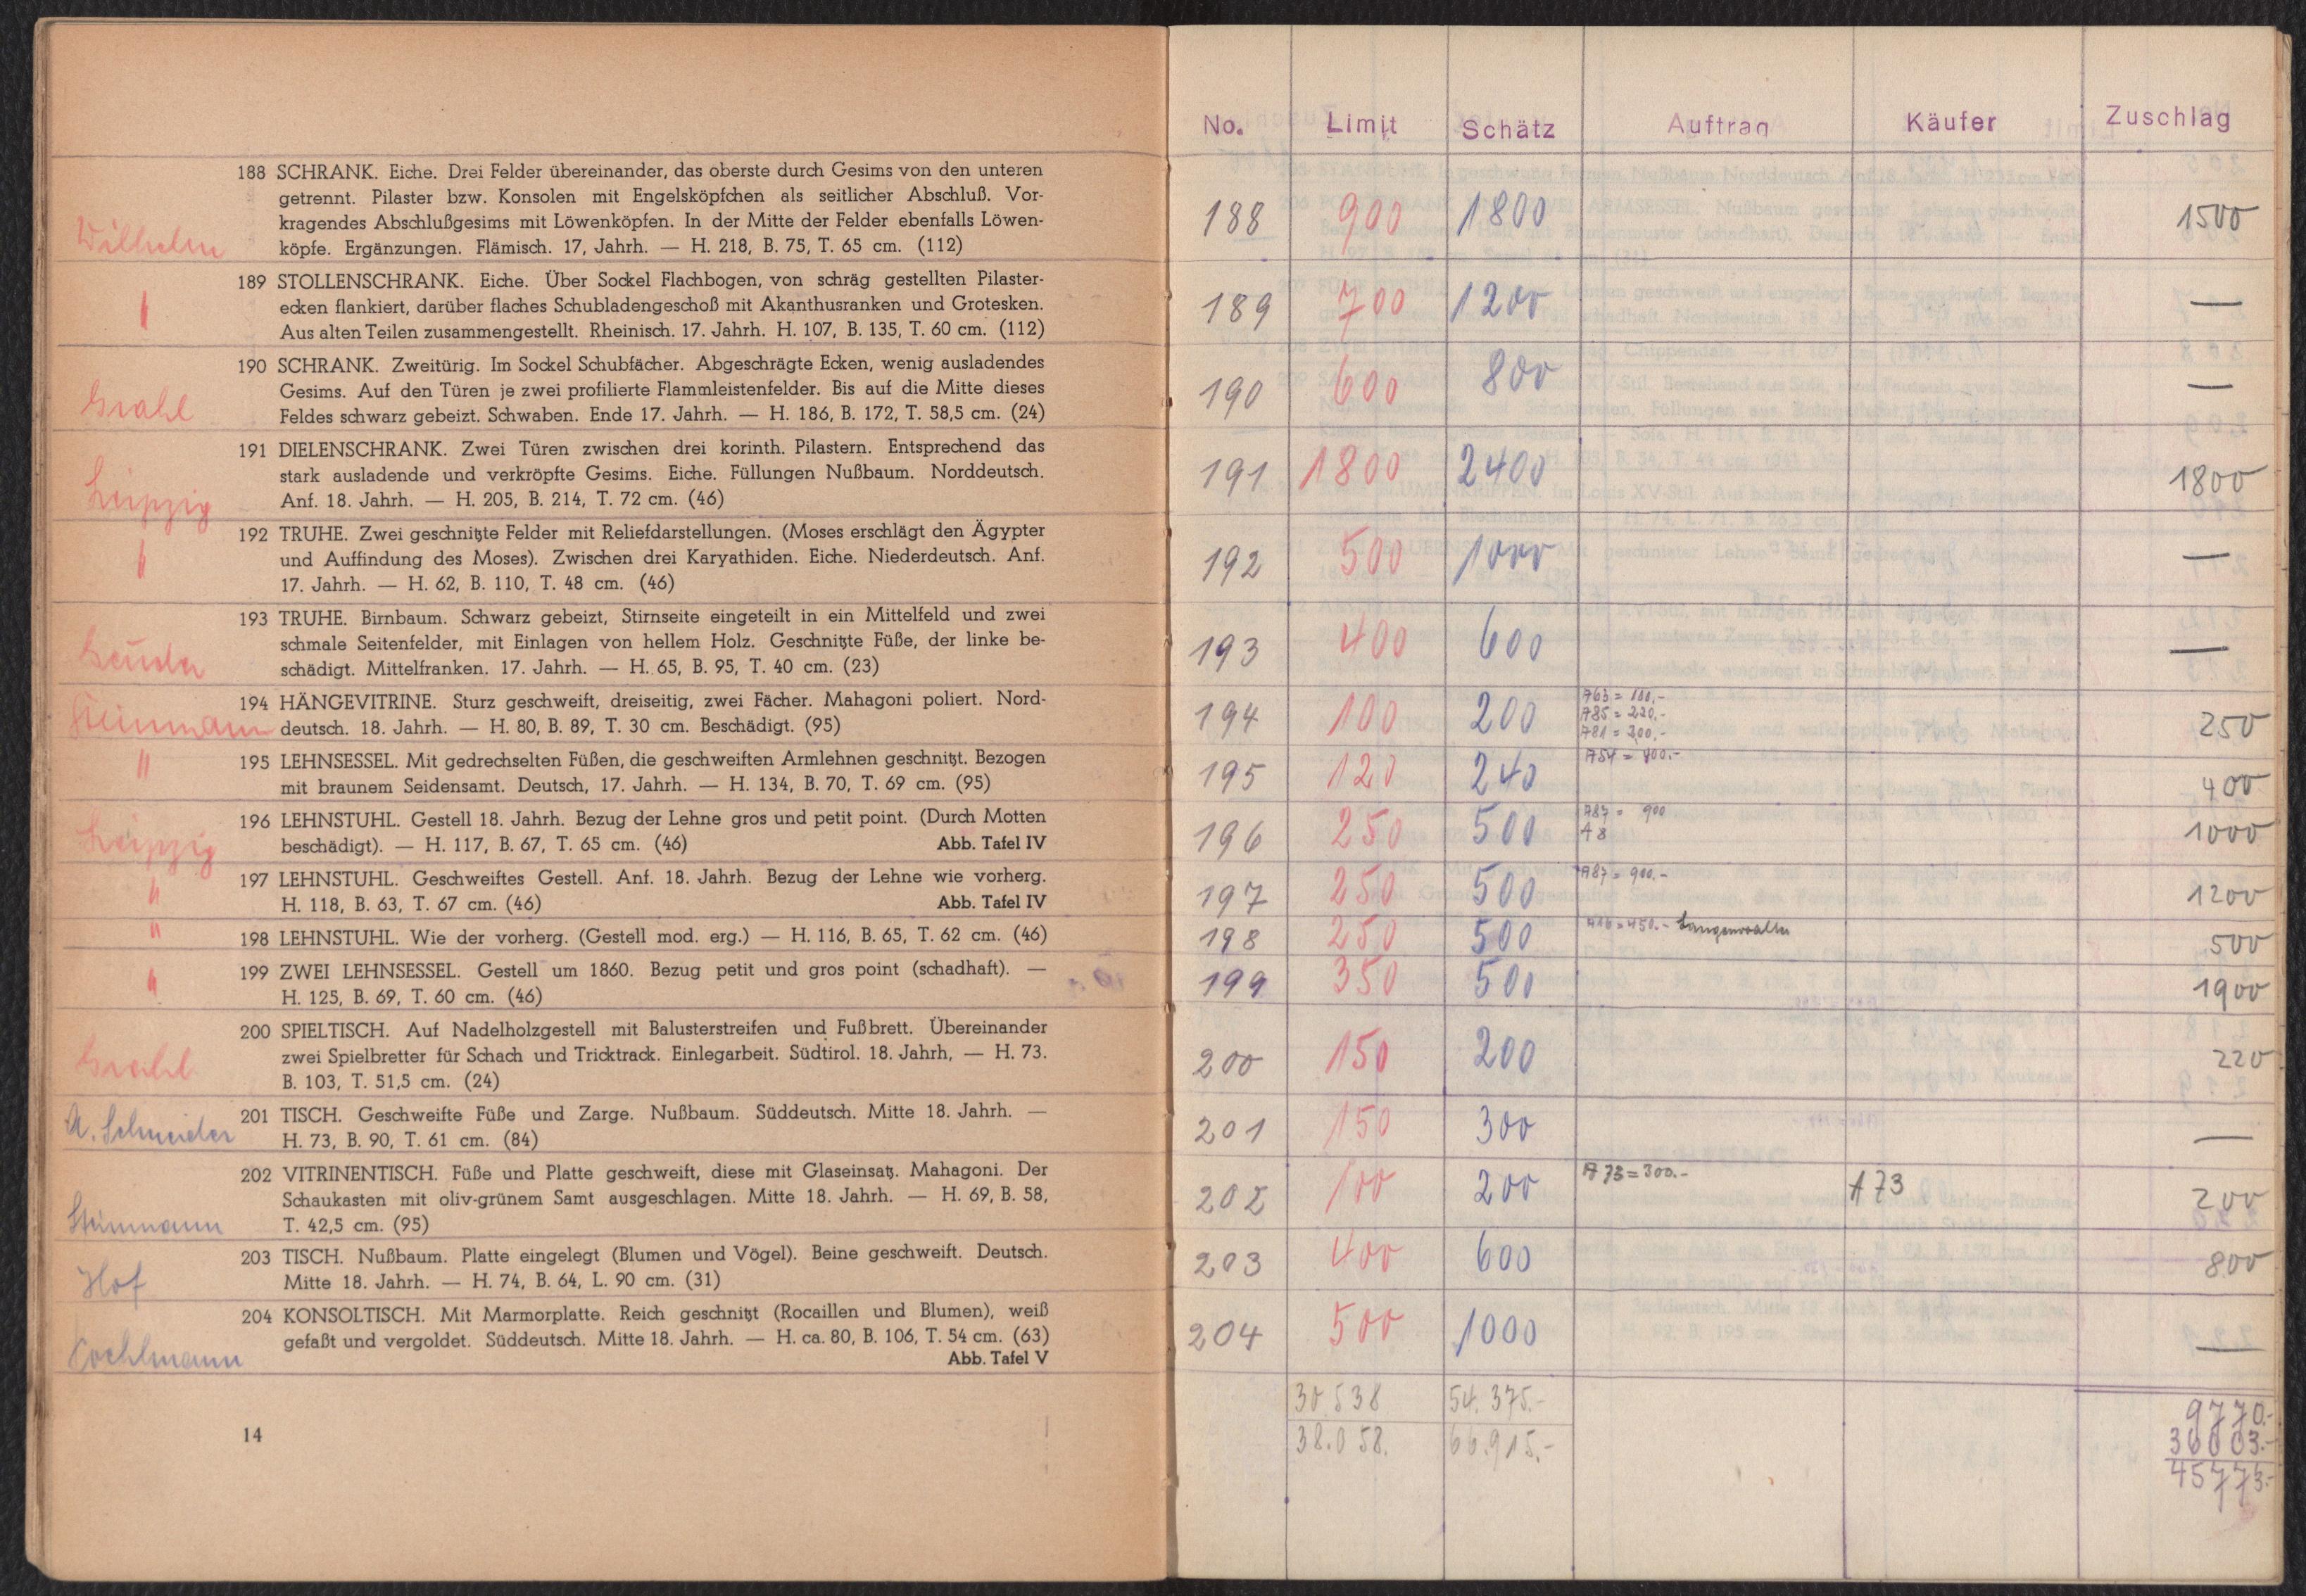 188 SCHRANK. Eiche. Drei Felder übereinander, das oberste durch Gesims von den unteren
getrennt. Pilaster bzw. Konsolen mit Engelsköpfchen als seitlicher Abschluß. Vor-
kragendes Abschlußgesims mit Löwenköpfen. In der Mitte der Felder ebenfalls Löwen-
Wilhelm köpfe. Ergänzungen. Flämisch. 17, Jahrh. — H. 218, B. 75, T. 65 cm. (112)
189 STOLLENSCHRANK. Eiche. Über Sockel Flachbogen, von schräg gestellten Pilaster-
ecken flankiert, darüber flaches Schubladengeschoß mit Akanthusranken und Grotesken.
Aus alten Teilen zusammengestellt. Rheinisch. 17. Jahrh. H. 107, B. 135, T. 60 cm. (112)
190 SCHRANK. Zweitürig. Im Sockel Schubfächer. Abgeschrägte Ecken, wenig ausladendes
Gesims. Auf den Türen je zwei profilierte Flammleistenfelder. Bis auf die Mitte dieses
Grahl Feldes schwarz gebeizt. Schwaben. Ende 17. Jahrh. — H. 186, B. 172, T. 58,5 cm. (24)
191 DIELENSCHRANK. Zwei Türen zwischen drei korinth. Pilastern. Entsprechend das
stark ausladende und verkröpfte Gesims. Eiche. Füllungen Nußbaum. Norddeutsch.
Leipzig Anf. 18. Jahrh. — H. 205, B. 214, T. 72 cm. (46)
192 TRUHE. Zwei geschnitzte Felder mit Reliefdarstellungen. (Moses erschlägt den Ägypter
" und Auffindung des Moses). Zwischen drei Karyathiden. Eiche. Niederdeutsch. Anf.
17. Jahrh. — H. 62, B. 110, T. 48 cm. (46)
193 TRUHE. Birnbaum. Schwarz gebeizt, Stirnseite eingeteilt in ein Mittelfeld und zwei
schmale Seitenfelder, mit Einlagen von hellem Holz. Geschnitzte Füße, der linke be-
schädigt. Mittelfranken. 17. Jahrh. — H. 65, B. 95, T. 40 cm. (23)
194 HÄNGEVITRINE. Sturz geschweift, dreiseitig, zwei Fächer. Mahagoni poliert. Nord-
Steinmann deutsch. 18. Jahrh. — H. 80, B. 89, T. 30 cm. Beschädigt. (95)
" 195 LEHNSESSEL. Mit gedrechselten Füßen, die geschweiften Armlehnen geschnitzt. Bezogen
mit braunem Seidensamt. Deutsch, 17. Jahrh. — H. 134, B. 70, T. 69 cm. (95)
196 LEHNSTUHL. Gestell 18. Jahrh. Bezug der Lehne gros und petit point. (Durch Motten
Leipzig beschädigt). — H. 117, B. 67, T. 65 cm. (46) Abb. Tafel IV
197 LEHNSTUHL. Geschweiftes Gestell. Anf. 18. Jahrh. Bezug der Lehne wie vorherg.
" H. 118, B. 63, T. 67 cm. (46) Abb. Tafel IV
" 198 LEHNSTUHL. Wie der vorherg. (Gestell mod. erg.) — H. 116, B. 65, T. 62 cm. (46)
199 ZWEI LEHNSESSEL. Gestell um 1860. Bezug petit und gros point (schadhaft). —
" H. 125, B. 69, T. 60 cm. (46)
200 SPIELTISCH. Auf Nadelholzgestell mit Balusterstreifen und Fußbrett. Übereinander
Grahl zwei Spielbretter für Schach und Tricktrack. Einlegarbeit. Südtirol. 18. Jahrh, — H. 73.
B. 103, T. 51,5 cm. (24)
201 TISCH. Geschweifte Füße und Zarge. Nußbaum. Süddeutsch. Mitte 18. Jahrh. —
A. Schneider H. 73, B. 90, T. 61 cm. (84)
202 VITRINENTISCH. Füße und Platte geschweift, diese mit Glaseinsatz. Mahagoni. Der
Schaukasten mit oliv-grünem Samt ausgeschlagen. Mitte 18. Jahrh. — H. 69, B. 58,
Steinmann T. 42,5 cm. (95)
203 TISCH. Nußbaum. Platte eingelegt (Blumen und Vögel). Beine geschweift. Deutsch.
Hof Mitte 18. Jahrh. — H. 74, B. 64, L. 90 cm. (31)
204 KONSOLTISCH. Mit Marmorplatte. Reich geschnitzt (Rocaillen und Blumen), weiß
gefaßt und vergoldet. Süddeutsch. Mitte 18. Jahrh. — H. ca. 80, B. 106, T. 54 cm. (63)
Abb. Tafel V
14
No. Limit Schätz Auftrag Käufer Zuschlag
188 900 1800 1500
189 700 1200 —
190 600 800 —
191 1800 2400 1800
192 500 1000 —
193 400 600 —
194 100 200 A63 = 100,- 250
A85 = 220.-
A81 = 200,-
195 120 240 A54 = 400.- 400
196 250 500 A87 = 900 1000
A8
197 250 500 A87 = 900.- 1200
198 250 500 A16 = 450.- 500
199 350 500 1900
200 150 200 220
201 150 300 —
202 100 200 A73 = 300.- A73 200
203 400 600 800
204 500 1000 —
30.538 54.375.- 9770.-
38.058. 66.915.- 36003.-
45773.-